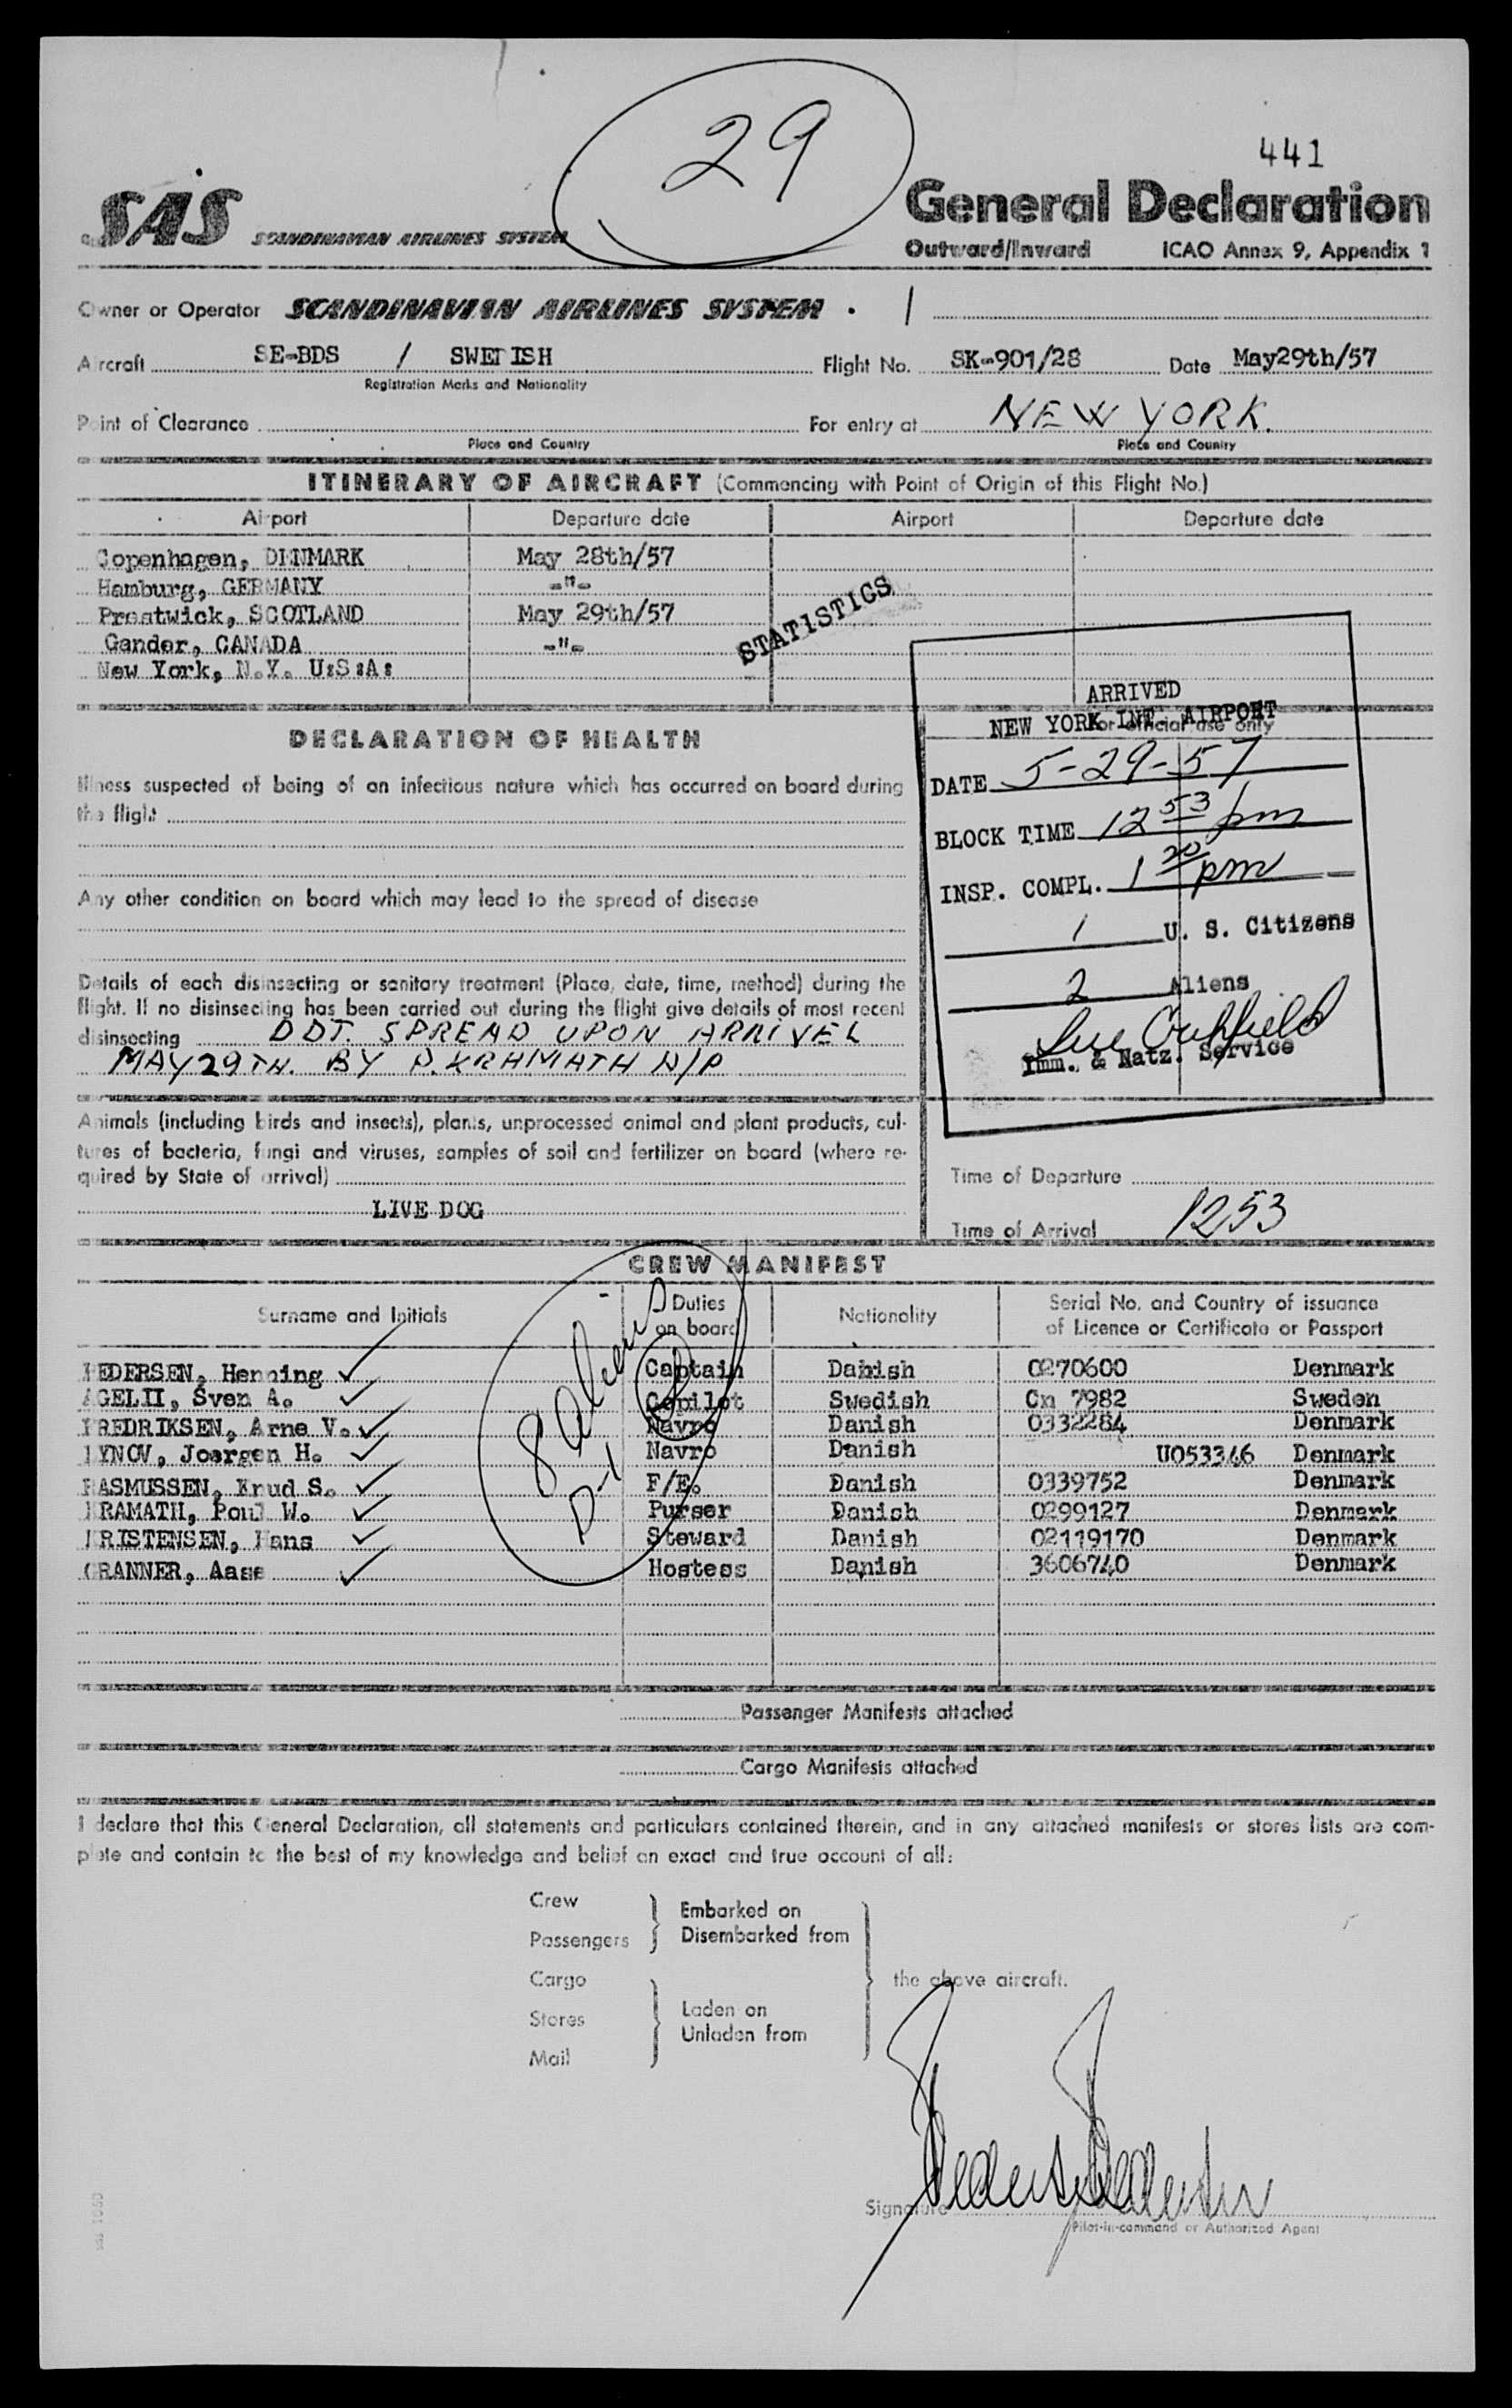 29
441
SAS SCANDINAVIAN AIRLINES SYSTEM
General Declaration
Outward/Inward ICAO Annex 9, Appendix 1
Owner or Operator SCANDINAVIAN AIRLINES SYSTEM .
Aircraft SE-BDS / SWEDISH Flight No. SK-901/28 Date May29th/57
Registration Marks and Nationality
Point of Clearance For entry at NEW YORK.
Place and Country Place and Country
ITINERARY OF AIRCRAFT (Commencing with Point of Origin of this Flight No.)
Airport Departure date Airport Departure date
Copenhagen, DENMARK May 28th/57
Hamburg, GERMANY -"-
Prestwick, SCOTLAND May 29th/57
Gander, CANADA -"-
New York, N.Y. U:S:A:
STATISTICS
DECLARATION OF HEALTH
Illness suspected of being of an infectious nature which has occurred on board during
the flight
Any other condition on board which may lead to the spread of disease
Details of each disinsecting or sanitary treatment (Place, date, time, method) during the
flight. If no disinsecting has been carried out during the flight give details of most recent
disinsecting DDT. SPREAD UPON ARRIVEL
MAY 29TH. BY P. KRAMATH N/P
Animals (including birds and insects), plants, unprocessed animal and plant products, cul-
tures of bacteria, fungi and viruses, samples of soil and fertilizer on board (where re-
quired by State of arrival)
LIVE DOG
For official use only
ARRIVED
NEW YORK INT. AIRPORT
DATE 5-29-57
BLOCK TIME 12 53 pm
INSP. COMPL. 1 20 pm
1 U. S. Citizens
2 Aliens
Imm. & Natz. Service
Time of Departure
Time of Arrival 1253
CREW MANIFEST
Surname and Initials Duties on board Nationality Serial No. and Country of issuance
of Licence or Certificate or Passport
8 aliens
D-1
PEDERSEN, Henning Captain Danish 0270600 Denmark
AGELII, Sven A. Copilot Swedish Cn 7982 Sweden
FREDRIKSEN, Arne V. Navro Danish 0332284 Denmark
LYNOV, Joergen H. Navro Danish U053346 Denmark
RASMUSSEN, Knud S. F/E. Danish 0339752 Denmark
KRAMATH, Poul W. Purser Danish 0299127 Denmark
KRISTENSEN, Hans Steward Danish 02119170 Denmark
GRANNER, Aase Hostess Danish 3606740 Denmark
Passenger Manifests attached
Cargo Manifests attached
I declare that this General Declaration, all statements and particulars contained therein, and in any attached manifests or stores lists are com-
plete and contain to the best of my knowledge and belief an exact and true account of all:
Crew
Passengers
Embarked on
Disembarked from
Cargo
Stores
Mail
Laden on
Unladen from
the above aircraft.
Signature
Pilot-in-command or Authorized Agent